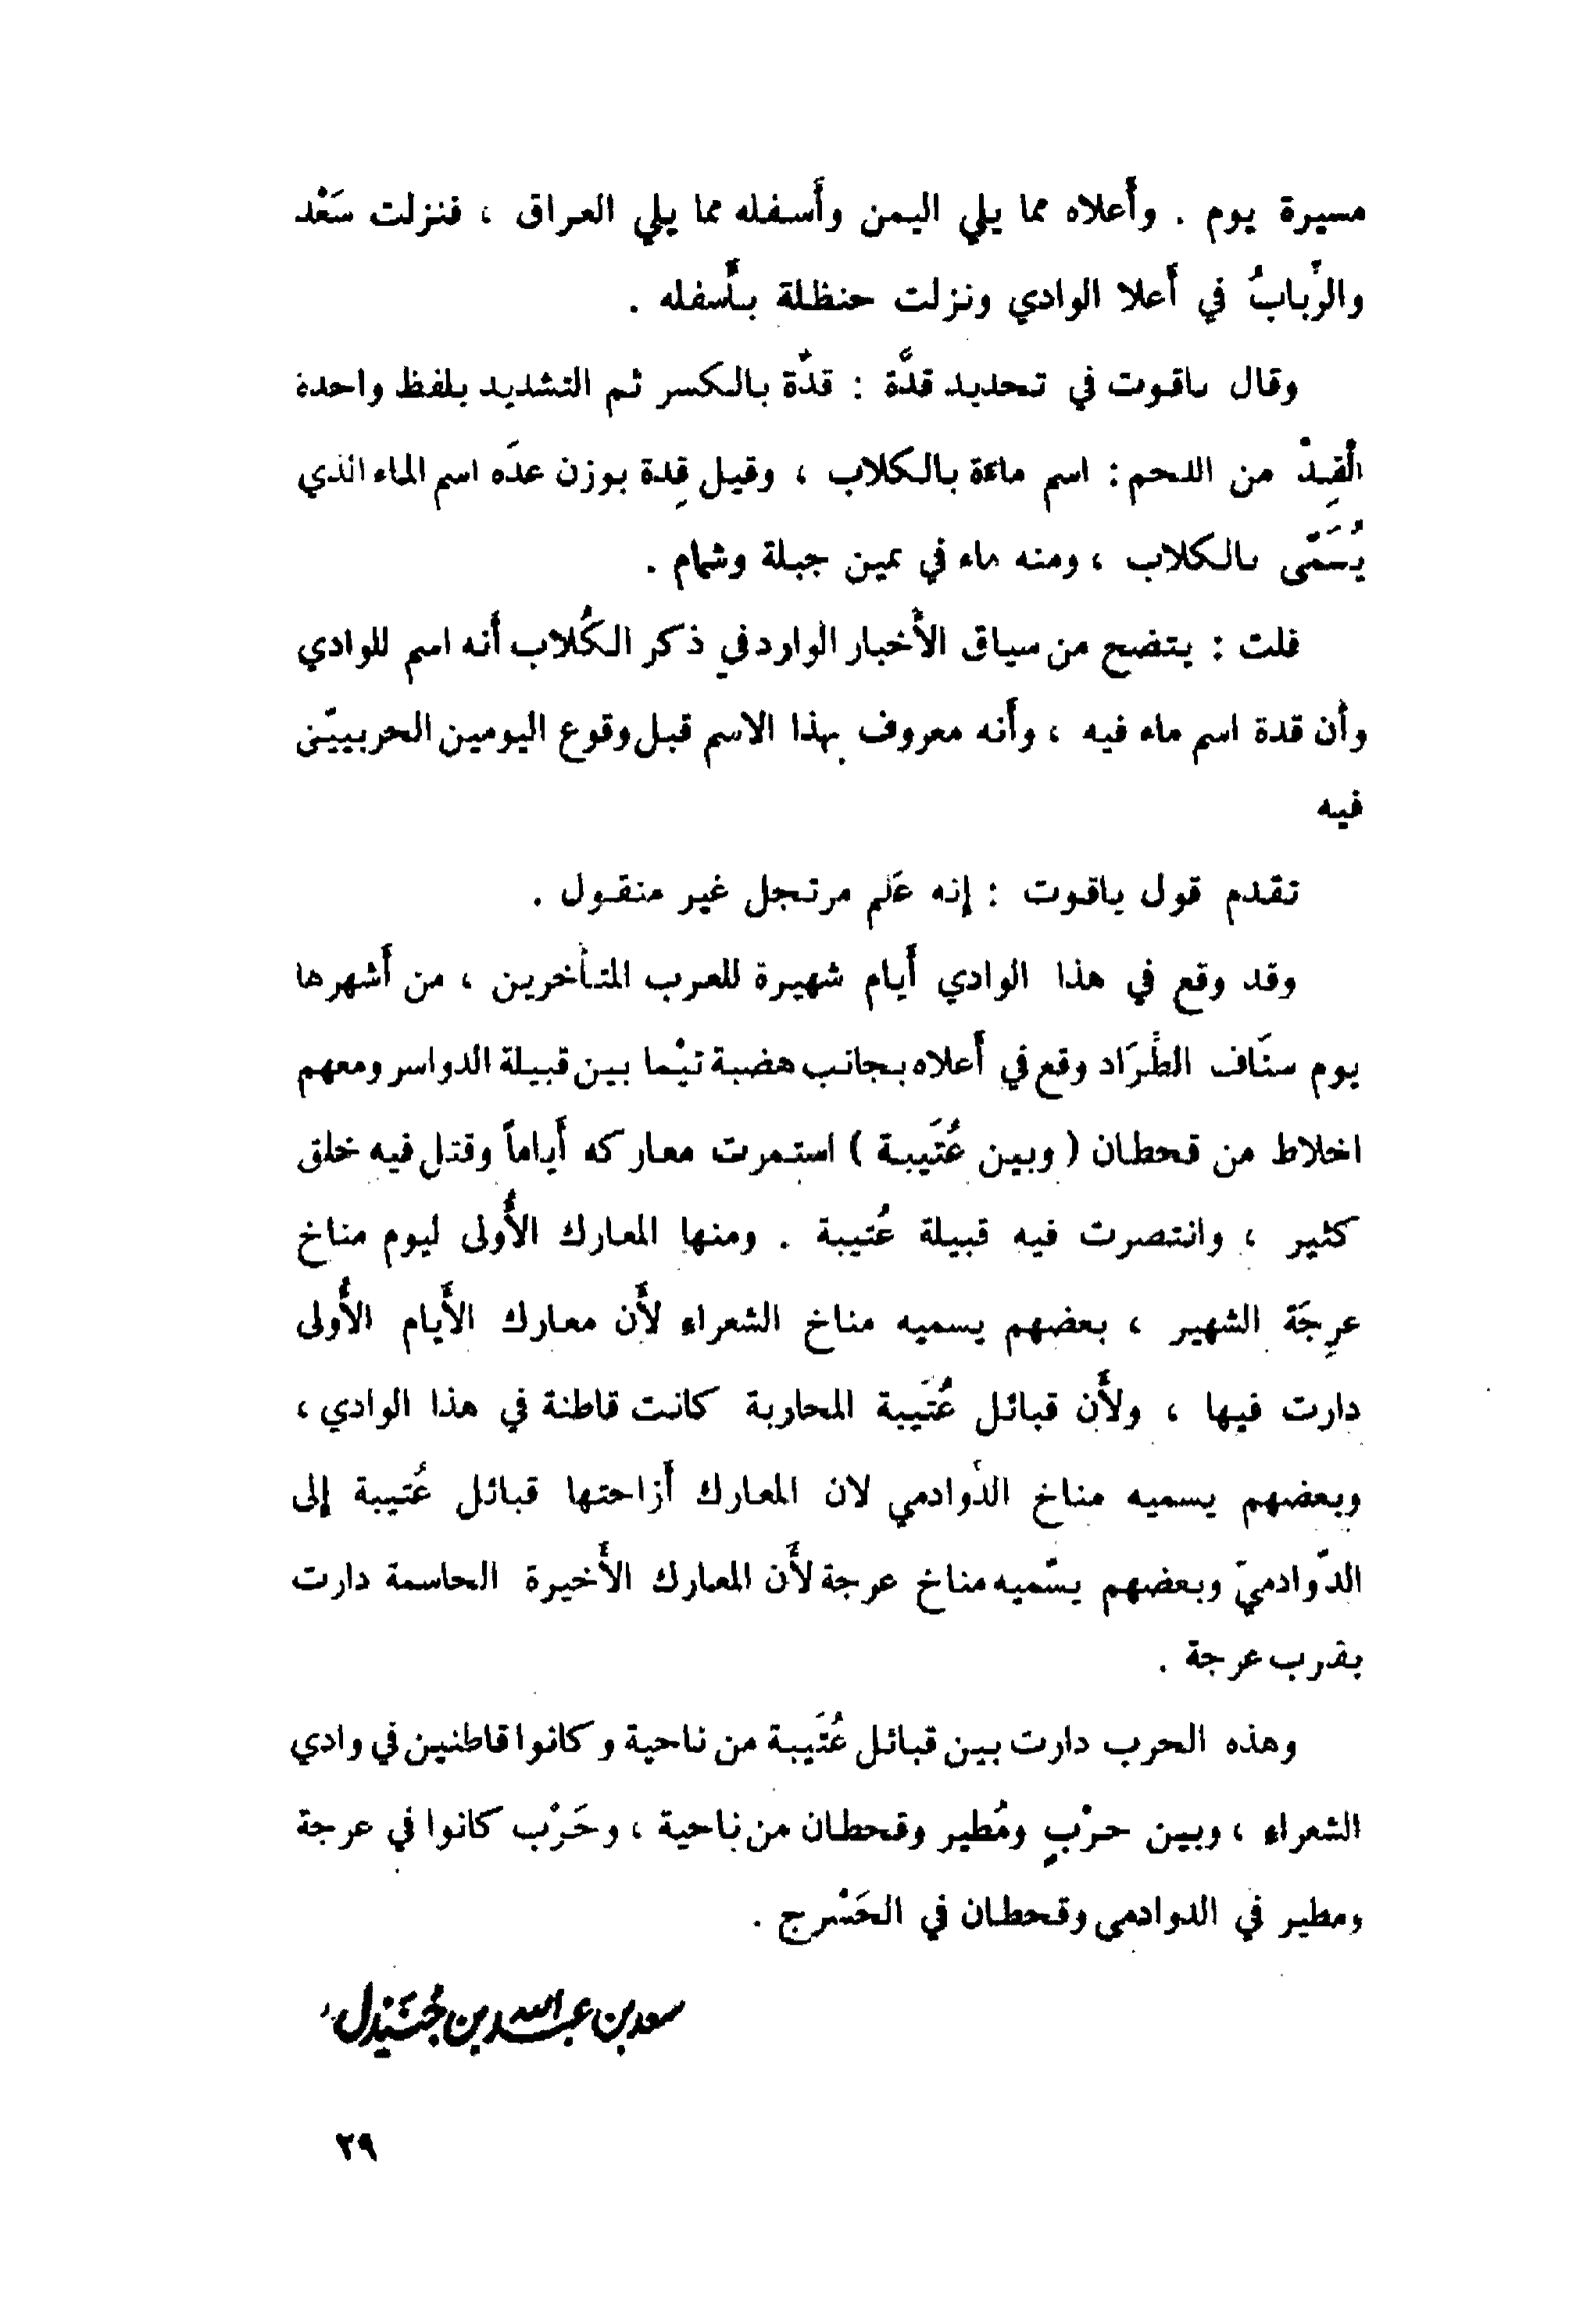 مسيرة يوم . وأَعلاه مما يلي اليمن وأَسفله مما يلي العراق ، فنزلت سَعْد
والرِّبابُ في أَعلا الوادي ونزلت حنظلة بأَسفله .
وقال ياقوت في تحديد قدَّة : قدّة بالكسر ثم التشديد بلفظ واحدة
الْقِدّ من اللحم : اسم ماءة بالكلاب ، وقيل قِدة بوزن عدَه اسم الماء الذي
يُسَمَّى بالكلاب ، ومنه ماء في يمين جبلة وشمام .
قلت : يتضح من سياق الأَخبار الوارد في ذكر الكُلاب أَنه اسم للوادي
وأَن قدة اسم ماء فيه ، وأَنه معروف بهذا الاسم قبل وقوع اليومين الحربييّن
فيه
تقدم قول ياقوت : إنه عَلم مرتجل غير منقول .
وقد وقع في هذا الوادي أَيام شهيرة للعرب المتأخرين ، من أَشهرها
يوم سنَاف الطِّرَاد وقع في أَعلاه بجانب هضبة تيْما بين قبيلة الدواسر ومعهم
اخلاط من قحطان ( وبين عُتَيبة ) استمرت معاركه أَياماً وقتل فيه خلق
كثير ، وانتصرت فيه قبيلة عُتيبة . ومنها المعارك الأُولى ليوم مناخ
عرِجَة الشهير ، بعضهم يسميه مناخ الشعراء لأَن معارك الأَيام الأُولى
دارت فيها ، ولأَن قبائل عُتَيبة المحاربة كانت قاطنة في هذا الوادي ،
وبعضهم يسميه مناخ الدوادمي لان المعارك أَزاحتها قبائل عُتيبة إلى
الدّوادميّ وبعضهم يسّميه مناخ عرجة لأَن المعارك الأَخيرة الحاسمة دارت
بقرب عرجة .
وهذه الحرب دارت بين قبائل عُتَيبة من ناحية وكانوا قاطنين في وادي
الشعراء ، وبين حرْبٍ ومُطير وقحطان من ناحية ، وحَرْب كانوا في عرجة
ومطير في الدوادمى وقحطان في الحَسْرج .
سعد بن عبد الله بن جُنَيْدِل
٢٩